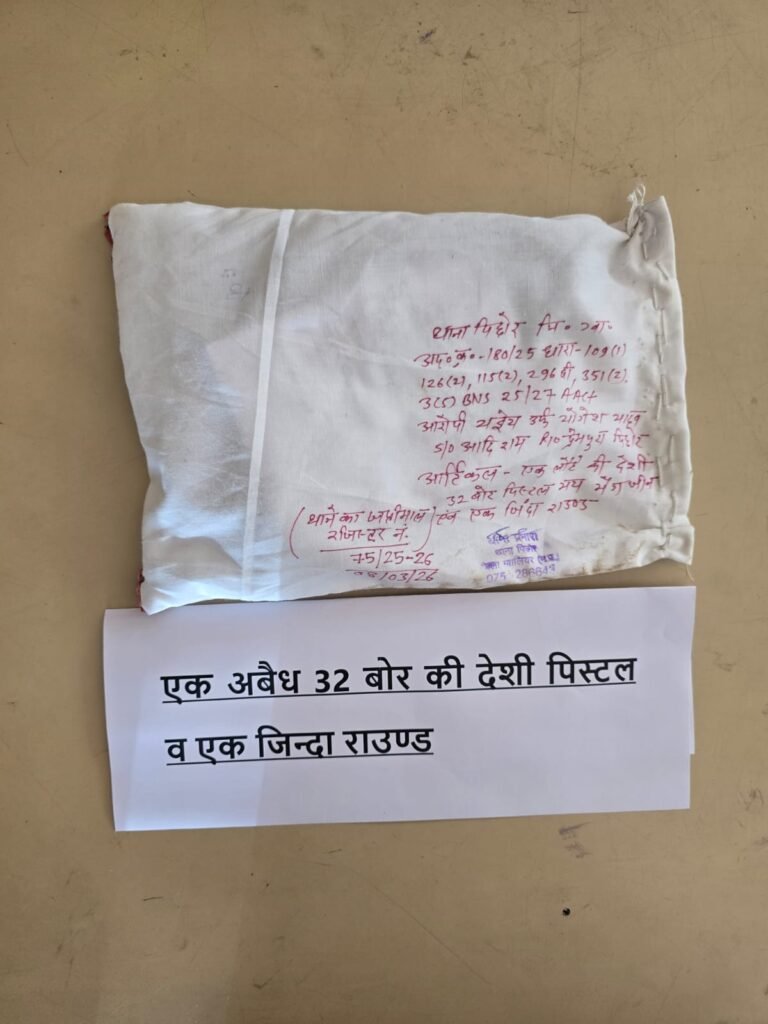 थाना पिछोर जि० ग्वा०
अप०क्र०-180/25 धारा-109(1)
126(2), 115(2), 296बी, 351(2),
3(5) BNS 25/27 A Act
आरोपी उर्फ योगेश यादव
S/O आदिराम R/O प्रेमपुरा पिछोर
आर्टिकल - एक लोहे की देशी
32 बोर पिस्टल मय मैगजीन
एवं एक जिंदा राउण्ड
(थाने का जप्तीमाल
रजिस्टर नं.)
75/25-26
/03/26
थाना पिछोर
जिला ग्वालियर (म.प्र.)
एक अबैध 32 बोर की देशी पिस्टल
व एक जिन्दा राउण्ड